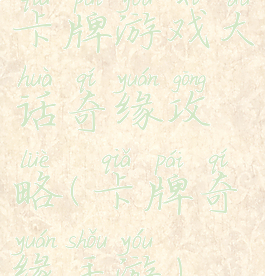 qiǎ pái yóu xì dà
卡牌游戏大
huà qí yuán gōng
话奇缘攻
lüè qiǎ pái qí
略(卡牌奇
yuán shǒu yóu
缘手游)